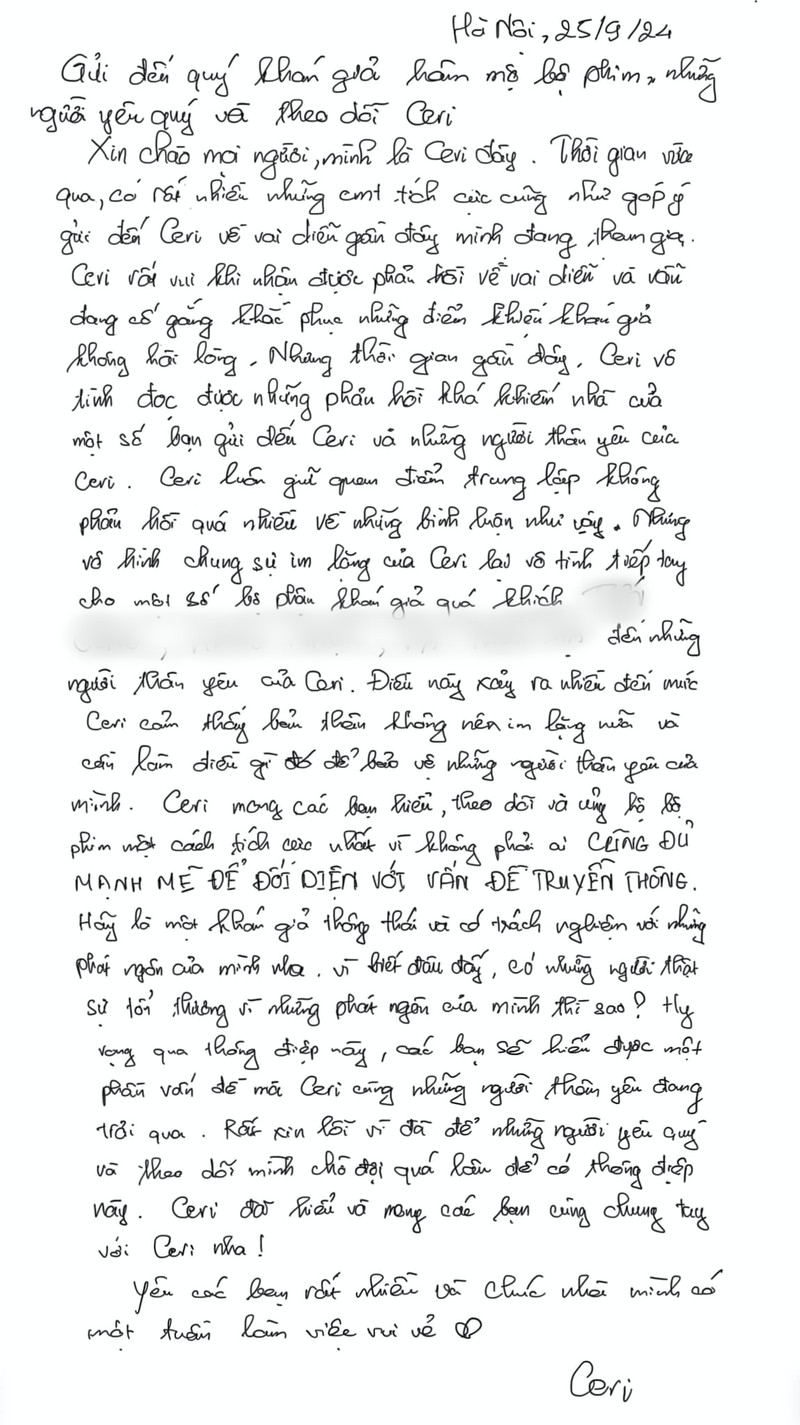 Hà Nội, 25/9/24
Gửi đến quý khán giả hâm mộ bộ phim, những
người yêu quý và theo dõi Ceri
Xin chào mọi người, mình là Ceri đây. Thời gian vừa
qua, có rất nhiều những cmt tích cực cũng như góp ý
gửi đến Ceri về vai diễn gần đây mình đang tham gia.
Ceri rất vui khi nhận được phản hồi về vai diễn và vẫn
đang cố gắng khắc phục những điểm khiến khán giả
không hài lòng. Nhưng thời gian gần đây, Ceri vô
tình đọc được những phản hồi khá khiếm nhã của
một số bạn gửi đến Ceri và những người thân yêu của
Ceri. Ceri luôn giữ quan điểm trung lập không
phản hồi quá nhiều về những bình luận như vậy. Nhưng
vô hình chung sự im lặng của Ceri lại vô tình tiếp tay
cho một số bộ phận khán giả quá khích
đến những
người thân yêu của Ceri. Điều này xảy ra nhiều đến mức
Ceri cảm thấy bản thân không nên im lặng nữa và
cần làm điều gì đó để bảo vệ những người thân yêu của
mình. Ceri mong các bạn hiểu, theo dõi và ủng hộ bộ
phim một cách tích cực nhất vì không phải ai CŨNG ĐỦ
MẠNH MẼ ĐỂ ĐỐI DIỆN VỚI VẤN ĐỀ TRUYỀN THÔNG.
Hãy là một khán giả thông thái và có trách nghiệm với những
phát ngôn của mình nha. vì biết đâu đấy, có những người thật
sự tổn thương vì những phát ngôn của mình thì sao? Hy
vọng qua thông điệp này, các bạn sẽ hiểu được một
phần vấn đề mà Ceri cùng những người thân yêu đang
trải qua. Rất xin lỗi vì đã để những người yêu quý
và theo dõi mình chờ đợi quá lâu để có thông điệp
này. Ceri đã hiểu và mong các bạn cùng chung tay
với Ceri nha!
Yêu các bạn rất nhiều và chúc nhà mình có
một tuần làm việc vui vẻ
Ceri